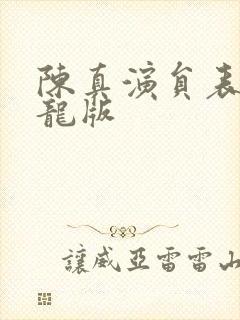 陳真演員表
龍版
讓威亞雷雷山